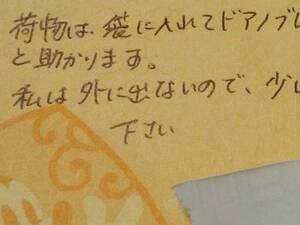 荷物は、袋に入れてドアノブに
と助かります。
私は外に出ないので、少し
下さい